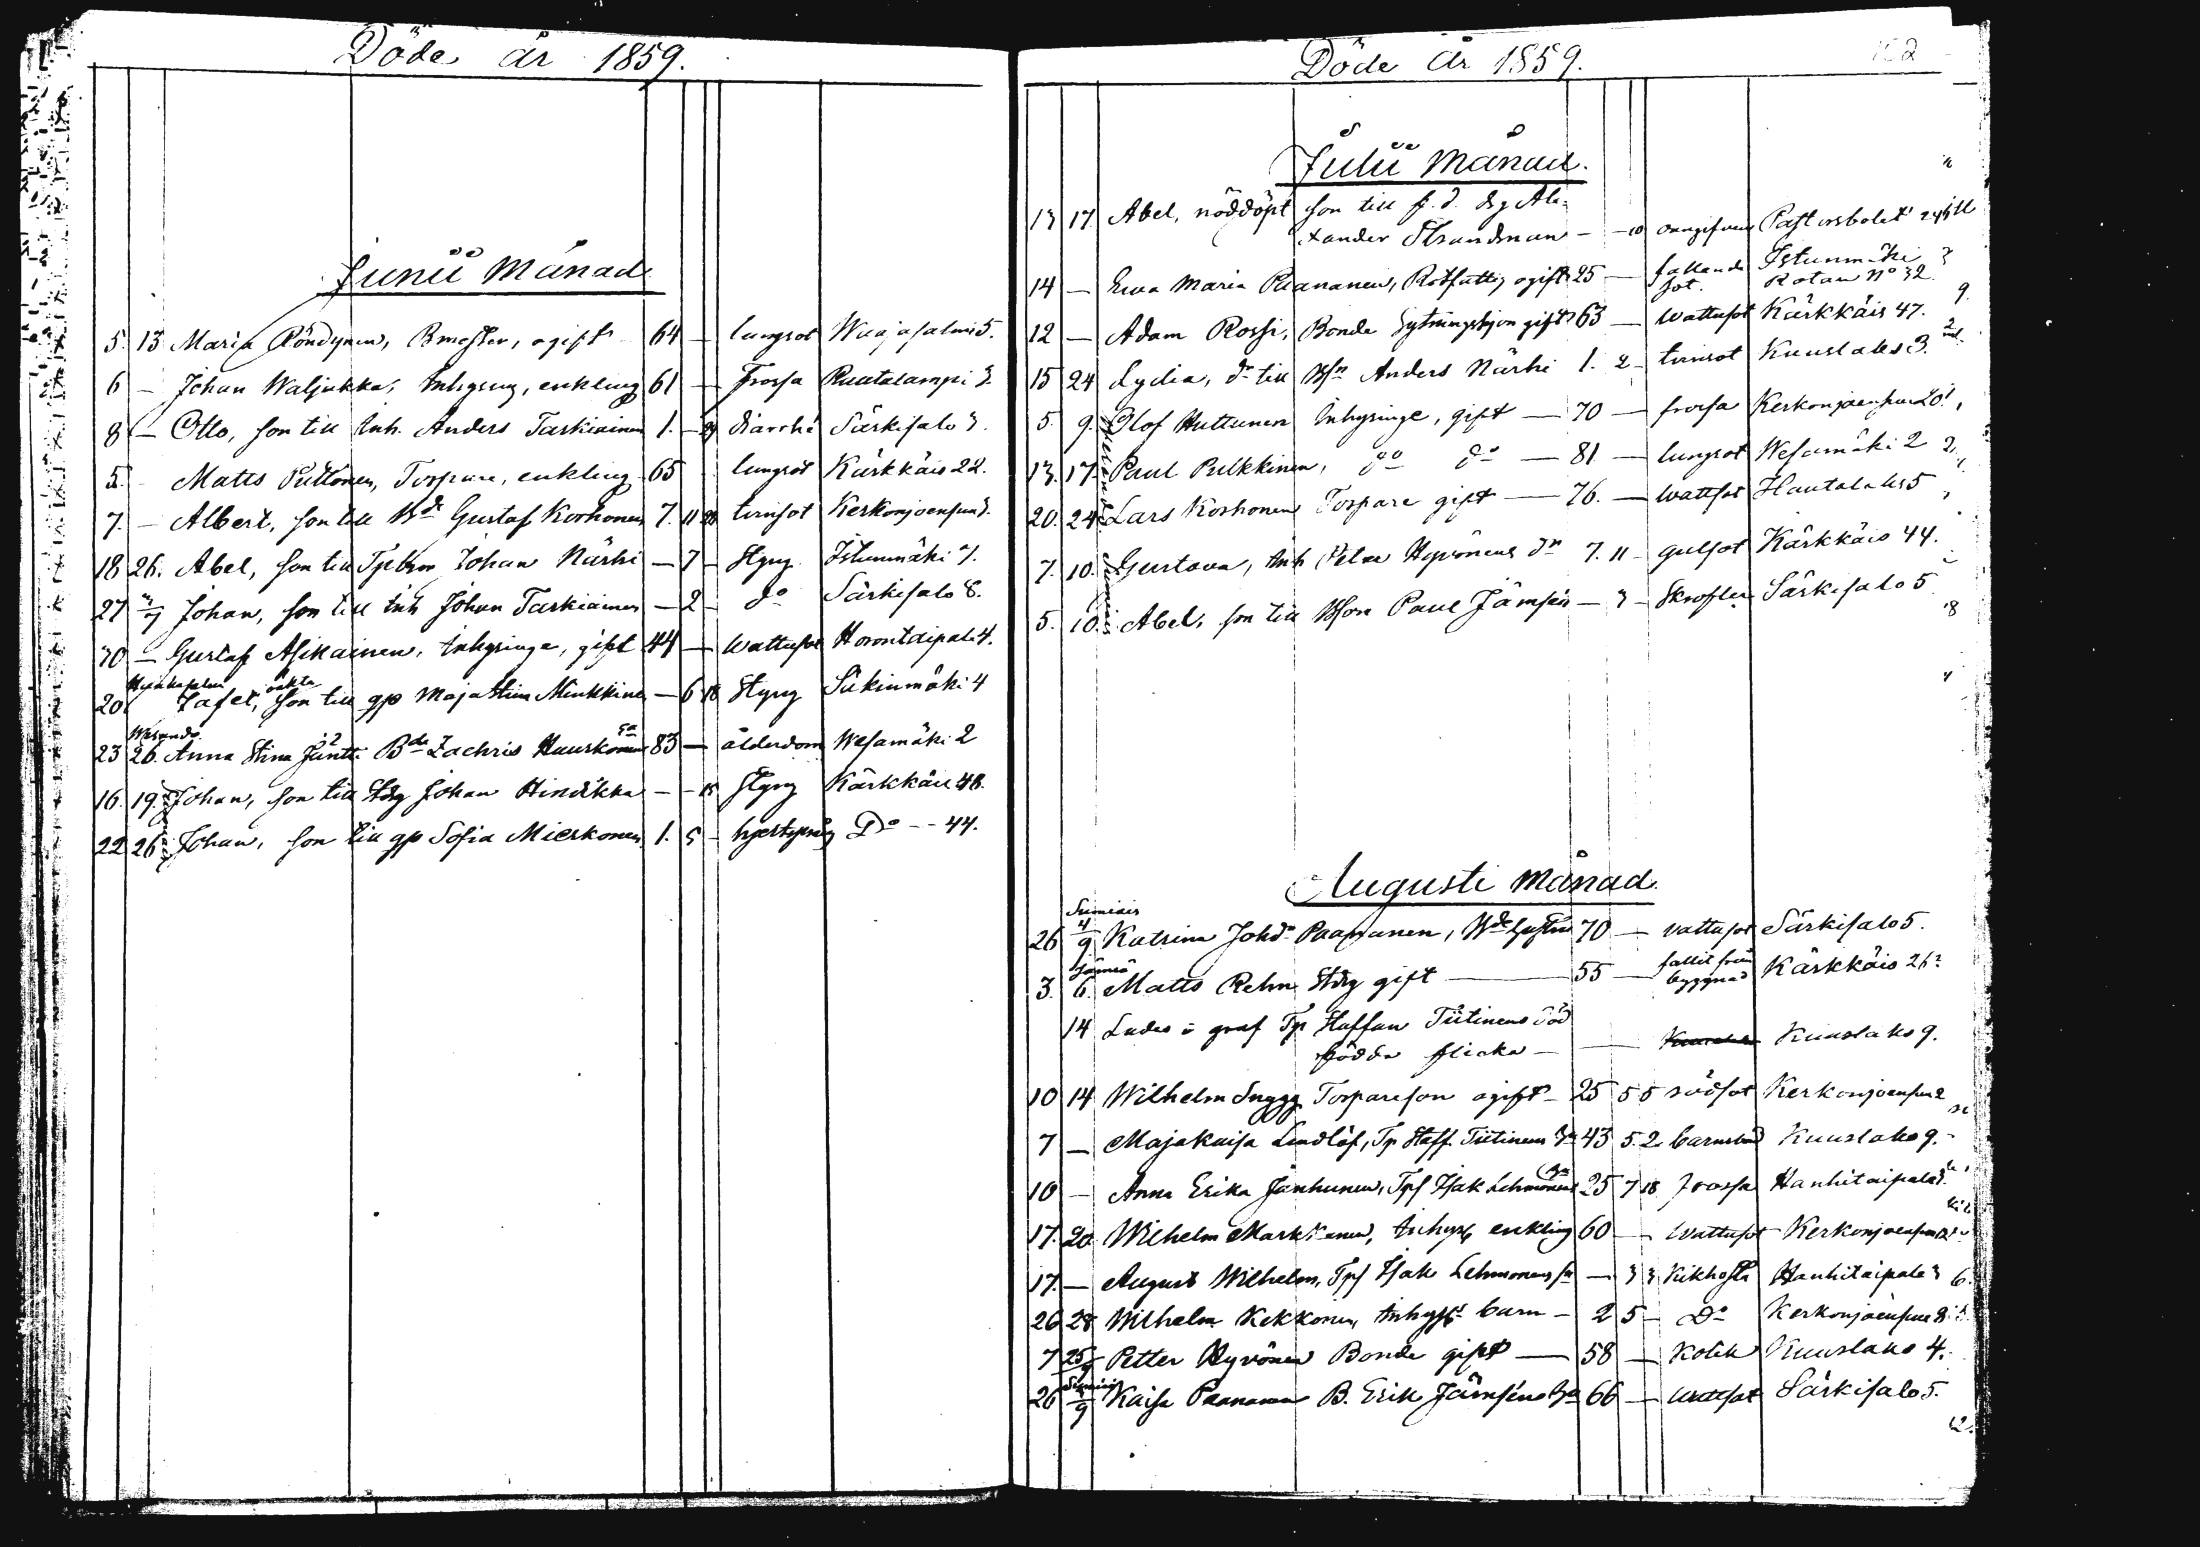 Döde år 1859.
Junii Månad
5. 13 Maria Röndynen, Rmester, ogift 64 — lungsot Waajasalmi 5.
6 — Johan Waljukka, Inhysing, enkling 61 — Frossa Ruutalampi 3.
8 — Otto, son till Inh. Anders Tarkiainen 1. — 29 diarrhé Särkisalo 3.
5. — Matts Puttonen, Torpare, enkling 65 lungsot Kärkkäis 22.
7. — Albert, son till Bde Gustaf Korhonen 7. 11 28 tvinsot Kerkonjoensuu 3.
18 26. Abel, son till Johan Närhi — 7 — Styng Istunmäki 7.
27 Johan, son till Inh Johan Tarkiainen — 2 — do Särkisalo 8.
30 — Gustaf Asikainen, Inhysinge, gift 44 — wattusot Horontaipale 4.
20 Jafet, oäkta son till gp Maja Stina Minkkinen — 6 18 Styng Sükinmäki 4
23 26. Anna Stina Jüntti Bde Zachris Huuskonens 83 — ålderdom Wesamäki 2
16. 19. Johan, son till Stdg Johan Hindikka — — 15 Styng Kärkkäis 48.
22 26 Johan, son till gp Sofia Mierkonen 1. 5 — Do -- 44.
Döde År 1859.
102
Julii Månad.
13 17 Abel, nöddöpt son till f. d. Ale-
xander Strandman — — 10 oangifven
14 — Ewa Maria Paananen, Rotfattig ogift 25 — fallande sot. Istunmäki Rotan No 32
12 — Adam Rossi, Bonde Sytningshjon gift 63 — wattusot Kärkkäis 47.
15 24 Lydia, dr till Anders Närhi 1. 2 — tvinsot Kuuslaks 3.
5. 9. Olof Huttunen Inhysinge, gift — 70 — frossa Kerkonjoensuu 20
13. 17. Paul Pulkkinen, do do — 81 — lungsot Wesamäki 2
20. 24 Lars Korhonen Torpare gift — 76. — wattsot Hautalaks 5
7. 10. Gustava, Inh Petter Hyvönens dr 7. 11 — gulsot Kärkkäis 44.
5. 10. Abel, son till Paul Jämsén — 3 — Skrofler Särkisalo 5
Augusti Månad.
Sumiais
26 4/9 Katrina Johdr Paananen, 70 — vattusot Särkisalo 5.
Jämsä
3. 6. Matts Rehn Stdg gift — 55 — fallit från byggnad Kärkkäis 26
14 Lades i graf Tp Staffan Tiitinens död
födda flicka — — Kuuslaks 9.
10 14 Wilhelm Snygg Torpareson ogift — 25 5 5 rödsot Kerkonjoensuu 2
7 — Majakaisa Lindlöf, Tp Staff. Tiitinens 43 5. 2. barnsbörd Kuuslaks 9.
10 — Anna Erika Janhunen, Tps Isak Lehmonens 25 7 18 frossa Hanhitaipale 3.
17. 20 Wilhelm Markkanen, Inhys, enkling 60 — wattusot Kerkonjoensuu
17. — August Wilhelm, Tps Isak Lehmonens — 3 3 Kikhosta Hanhitaipale 3
26 28 Wilhelm Kekkonen, Inhyss barn — 2 5 — Do Kerkonjoensuu 8
7 Petter Hyvönen Bonde gift — 58 — Kolik Kuuslaks 4.
Sumiais
26 Kaisa Paananen B. Erik Jämséns 66 — wattsot Särkisalo 5.